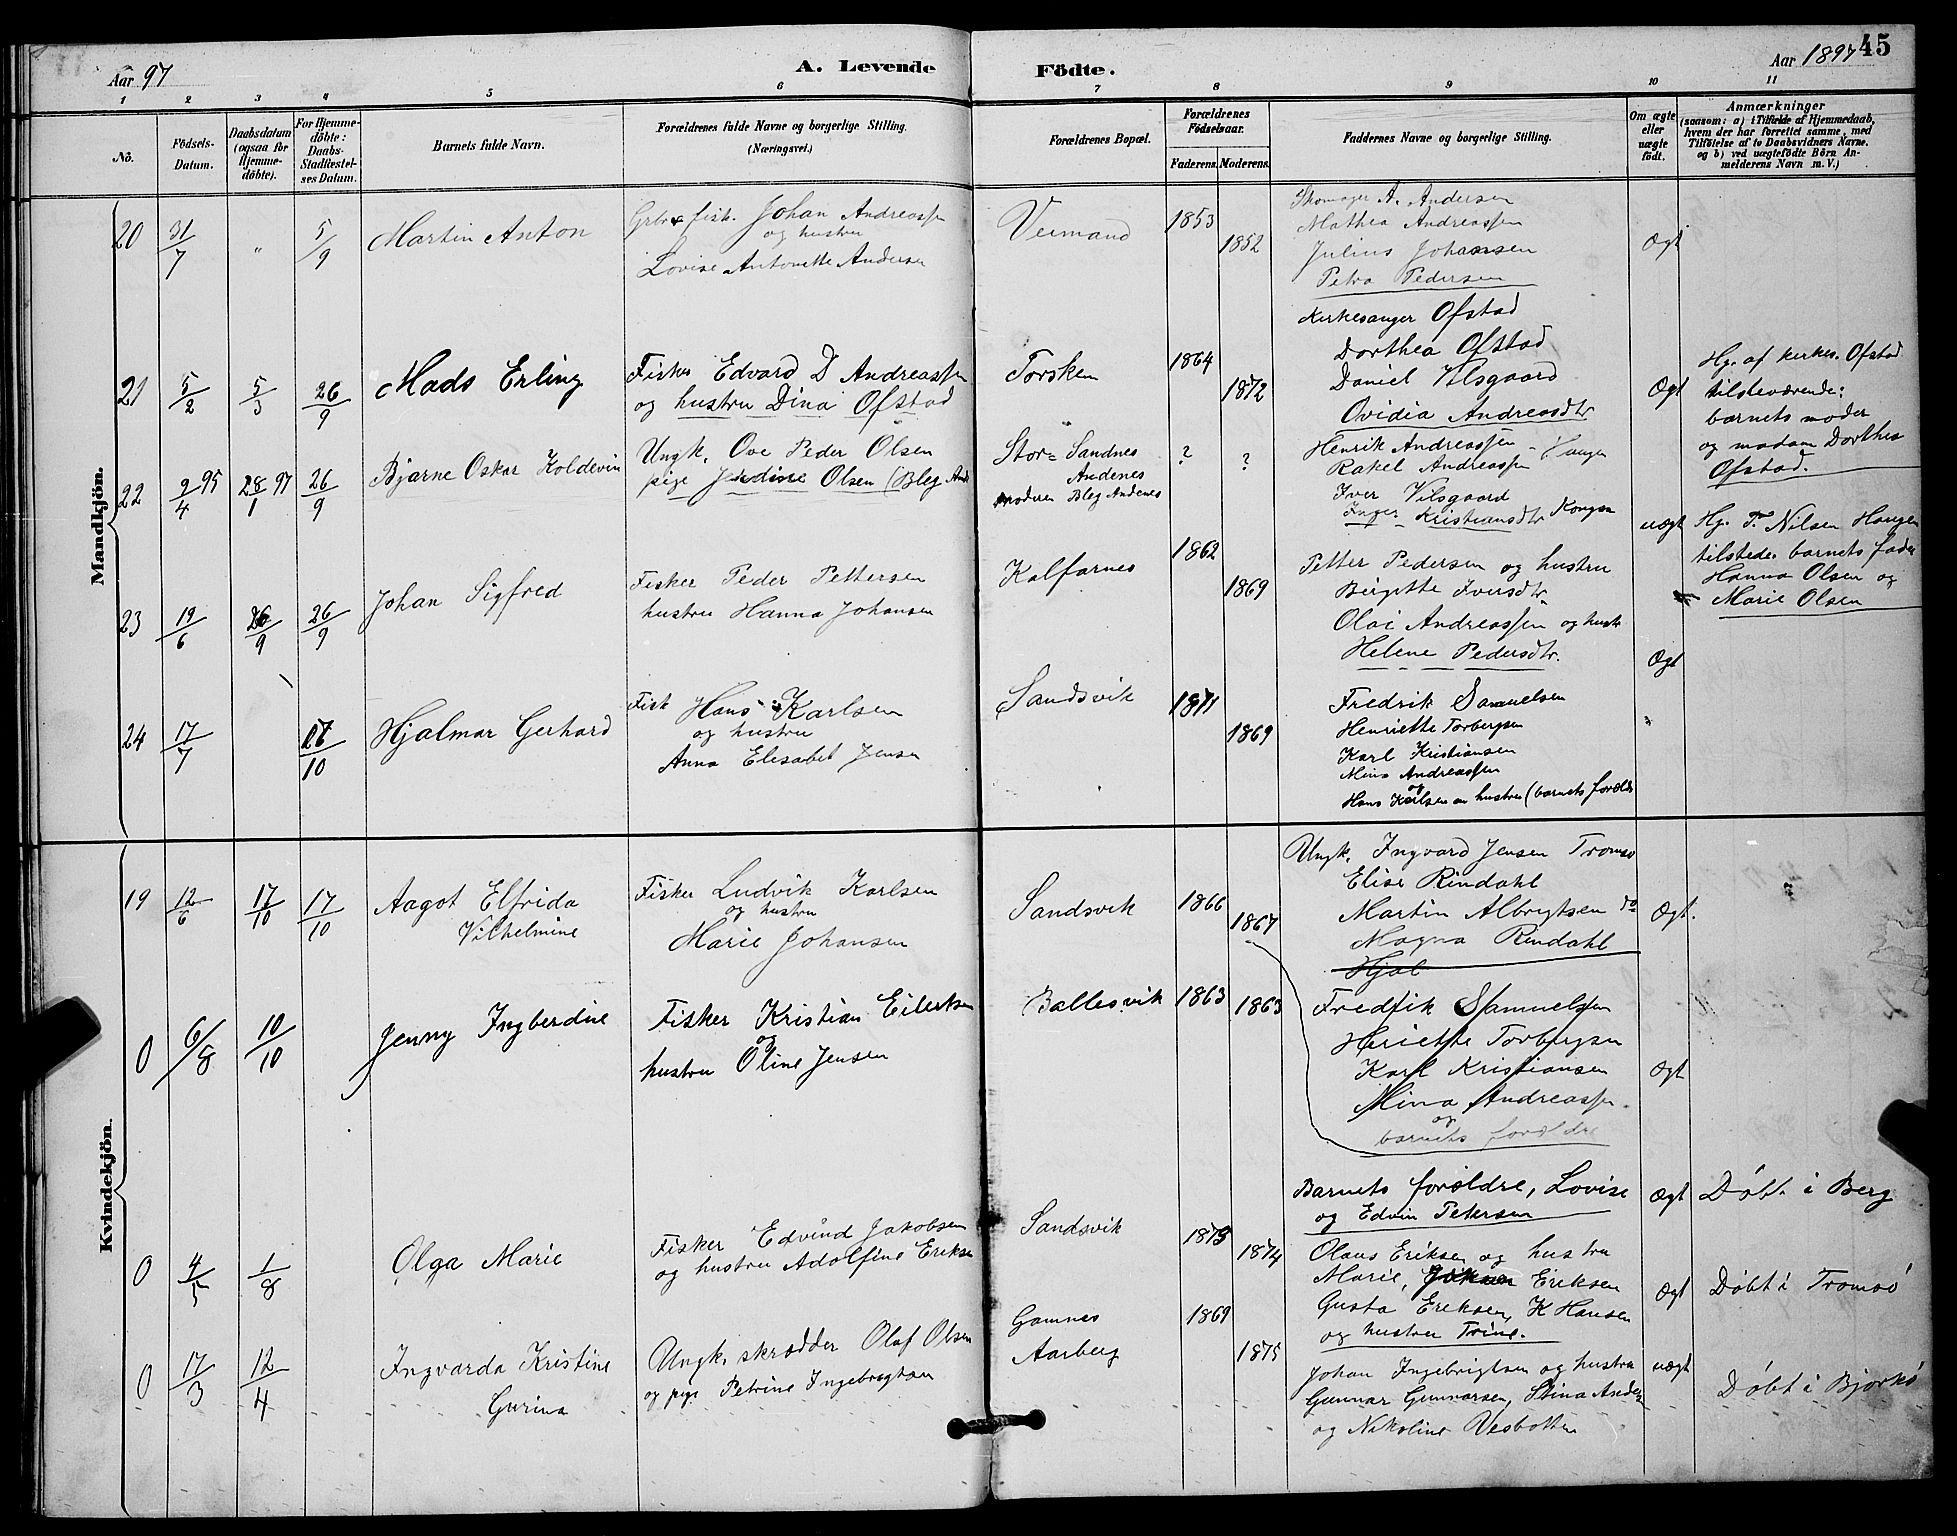 Aar 97
A. Levende Födte.
Aar 1897 45
1 2 3 4 5 6 7 8 9 10 11
No.
Födsels-Datum.
Daabsdatum (ogsaa for Hjemme-döbte).
For Hjemme-döbte: Daabs-Stadfæstel-ses Datum.
Barnets fulde Navn.
Forældrenes fulde Navne og borgerlige Stilling.
(Næringsvei.)
Forældrenes Bopæl.
Forældrenes Födselsaar.
Faderens. Moderens.
Faddernes Navne og borgerlige Stilling.
Om ægte eller uægte födt.
Anmærkninger
(saasom: a) i Tilfælde af Hjemmedaab,
hvem der har forrettet samme, med
Tilföielse af to Daabsvidners Navne.
og b) ved uægtefödte Börn An-
melderens Navn m. V.)
Mandkjön.
20 31/7 " 5/9 Martin Anton
Johan Andreassen
og hustru
Lovise Antonette Andersen
1853 1852
A. Andersen
Mathea Andreassen
Julius Johansen
Petra Pedersen
Ægt
21 5/2 5/3 26/9 Mads Erling
Fisker Edvard D Andreassen
og hustru Dina Ofstad
Torsken 1864 1872
Kirkesanger Ofstad
Dorthea Ofstad
Daniel Vilsgaard
Ovidia Andreasdtr
Ægt
Hg. af kirkes. Ofstad
tilsteværende:
barnets moder
og madam Dorthea
Ofstad.
22 9/4 95 28/1 97 26/9 Bjarne Oskar Koldevin
Ungk. Ove Peder Olsen
pige Olsen (Bleg And
Stor= Sandnes
Andenes
moderen Bleg Andenes
? ?
Henrik Andreassen
Rakel Andreassen
Iver Vilsgaard
Inger Kristiansdtr
uægt
Hg. T. Nilsen Haugen
tilstede. barnets fader
Hanna Olsen og
Marie Olsen
23 19/6 26/9 26/9 Johan Sigfred
Fisker Peder Pettersen
hustru Hanna Johansen
Kalfarnes 1862 1869
Petter Pedersen og hustru
Birgitte Iversdtr
Olai Andreassen og hustr
Helene Pedersdtr.
Ægt
24 17/7 17/10 Hjalmar Gerhard
Fisk Hans Karlsen
og hustru
Anna Elisabet Jensen
Sandsvik 1871 1869
Fredrik Samuelsen
Henriette Torbergsen
Karl Kristiansen
Mina Andreassen
og
Hans Karlsen hustru (barnets foræld
Kvindekjön.
19 12/6 17/10 17/10 Aagot Elfrida
Vilhelmine
Fisker Ludvik Karlsen
og hustru
Marie Johansen
Sandsvik 1866 1867
Ungk. Ingvard Jensen Tromsø
Elise Rindahl
Martin Albrigtsen do
Magna Rindahl
Hjal
Ægt.
0 6/8 10/10 Jenny Ingberdine
Fisker Kristian Eilertsen
og
hustru Oline Jensen
Ballesvik 1863 1863
Fredrik Samuelsen
Heriette Torbergsen
Karl Kristiansen
Mina Andreassen
og
barnets forældre
Ægt
Barnets forældre, Lovise
og Edvin Petersen
Ægt Døbt i Berg
0 4/5 1/8 Olga Marie
Fisker Edvind Jakobsen
og hustru Adolfine Eriksen
Sandsvik 1873 1874
Olaus Eriksen og hustru
Marie, Eriksen
Gusta Eriksen, K Hansen
og hustru Trine.
Ægt Døbt i Tromsø
0 17/3 12/4 Ingvarda Kristine
Gurina
Ungk. skrædder Olaf Olsen
og pige Petrine Ingebrigtsen
Gamnes
Aarberg
1869 1875
Johan Ingebrigtsen og hustru
Gunnar Gunnarsen, Stina Anders
og Nikoline Vesbotten
uægt Døbt i Bjorkø